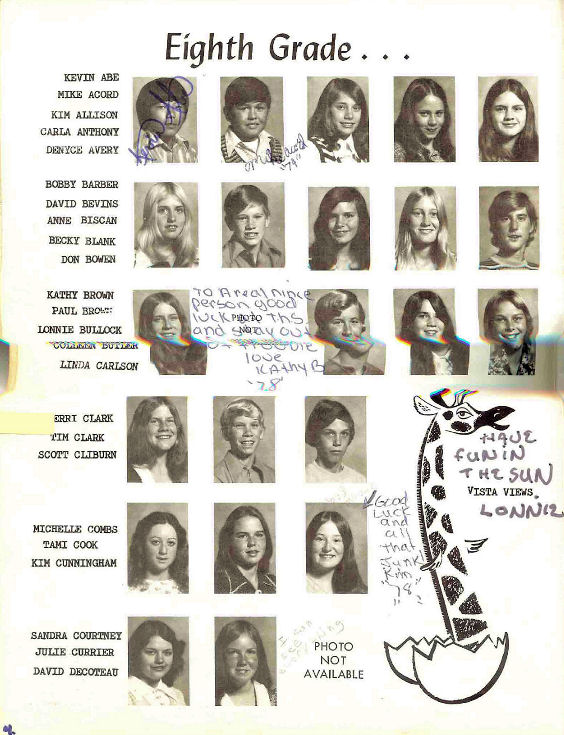 Eighth Grade . . .
KEVIN ABE
MIKE ACORD
KIM ALLISON
CARLA ANTHONY
DENYCE AVERY
BOBBY BARBER
DAVID BEVINS
ANNE BISCAN
BECKY BLANK
DON BOWEN
KATHY BROWN
PAUL BROWN
LONNIE BULLOCK
COLLEEN BUTLER
LINDA CARLSON
To A real nince
person good
luck this
and stay out
of trouble
love
KAthy B
"78"
PHOTO
NOT
ERRI CLARK
TIM CLARK
SCOTT CLIBURN
HAVE
FUN IN
THE SUN
VISTA VIEWS.
LONNIE
MICHELLE COMBS
TAMI COOK
KIM CUNNINGHAM
Good
Luck
and
all
that
Junk
Kim
"78"
SANDRA COURTNEY
JULIE CURRIER
DAVID DECOTEAU
PHOTO
NOT
AVAILABLE